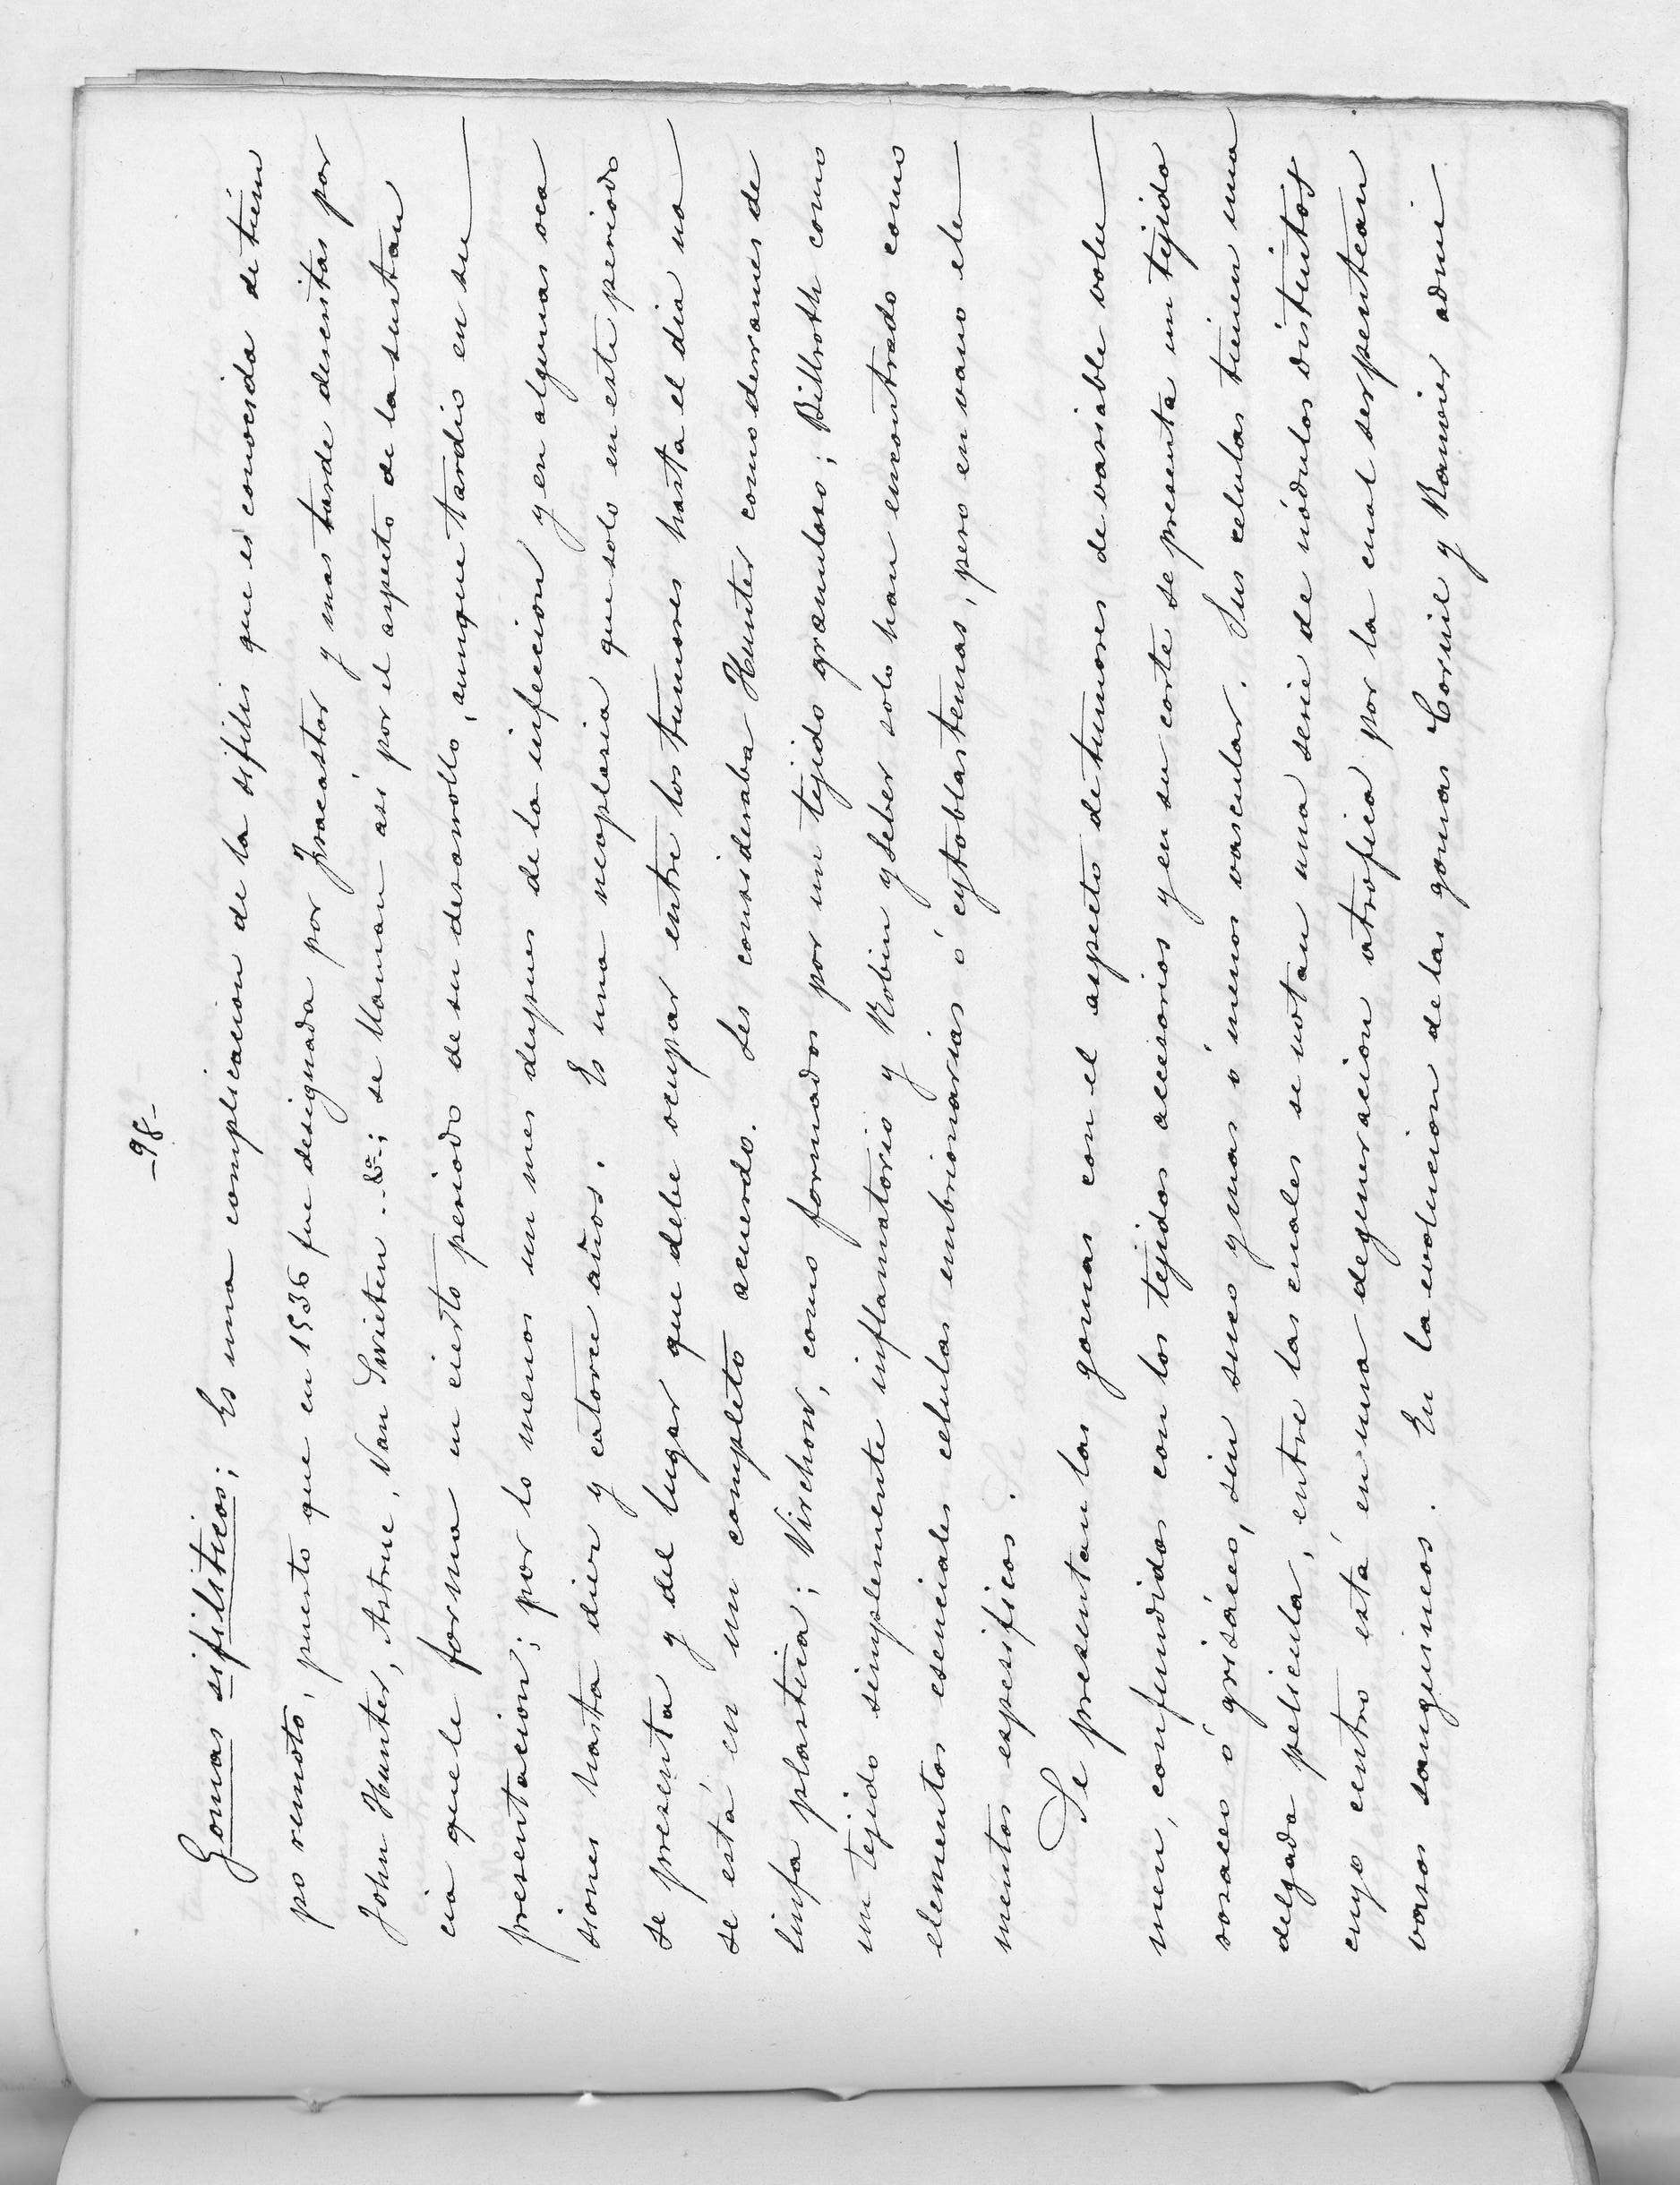 -98-
Gomas sifiliticos; Es una complicacion de la sifilis que es conocida de tiem
po remoto, puesto que en 1536 fue designada por Fracastor y mas tarde descritas por
John Hunter, Astruc, Van Swieten &ª; se llaman asi por el aspecto de la sustan
cia que le forma en cierto periodo de su desarrollo, aunque tardio en su
presentacion; por lo menos un mes despues de la infeccion y en algunas oca
siones hasta diez y catorce años. Es una neoplasia que solo en este periodo
se presenta y del lugar que debe ocupar entre los tumores hasta el dia no
se está en un completo acuerdo. Les consideraba Hunter como derrames de
linfa plastica; Virchow, como formados por un tejido granuloso; Billroth como
un tejido simplemente inflamatorio y Robin y Leber solo han encontrado como
elementos esenciales celulas embrionarias ó cytoblastemas, pero en vano ele
mentos espesificos.
Se presentan las gomas con el aspecto de tumores de variable volu
men, confundidos con los tejidos accesorios y en su corte se presenta un tejido
rosaceo ó grisáceo, sin suco y mas ó menos vascular. Sus celulas tienen una
delgada pelicula, entre las cuales se notan una serie de nódulos distintos
cuyo centro está en una degeneracion atrofica por la cual serpentean
vasos sanguineos. En la evolucion de las gomas Cornil y Ranvier admi